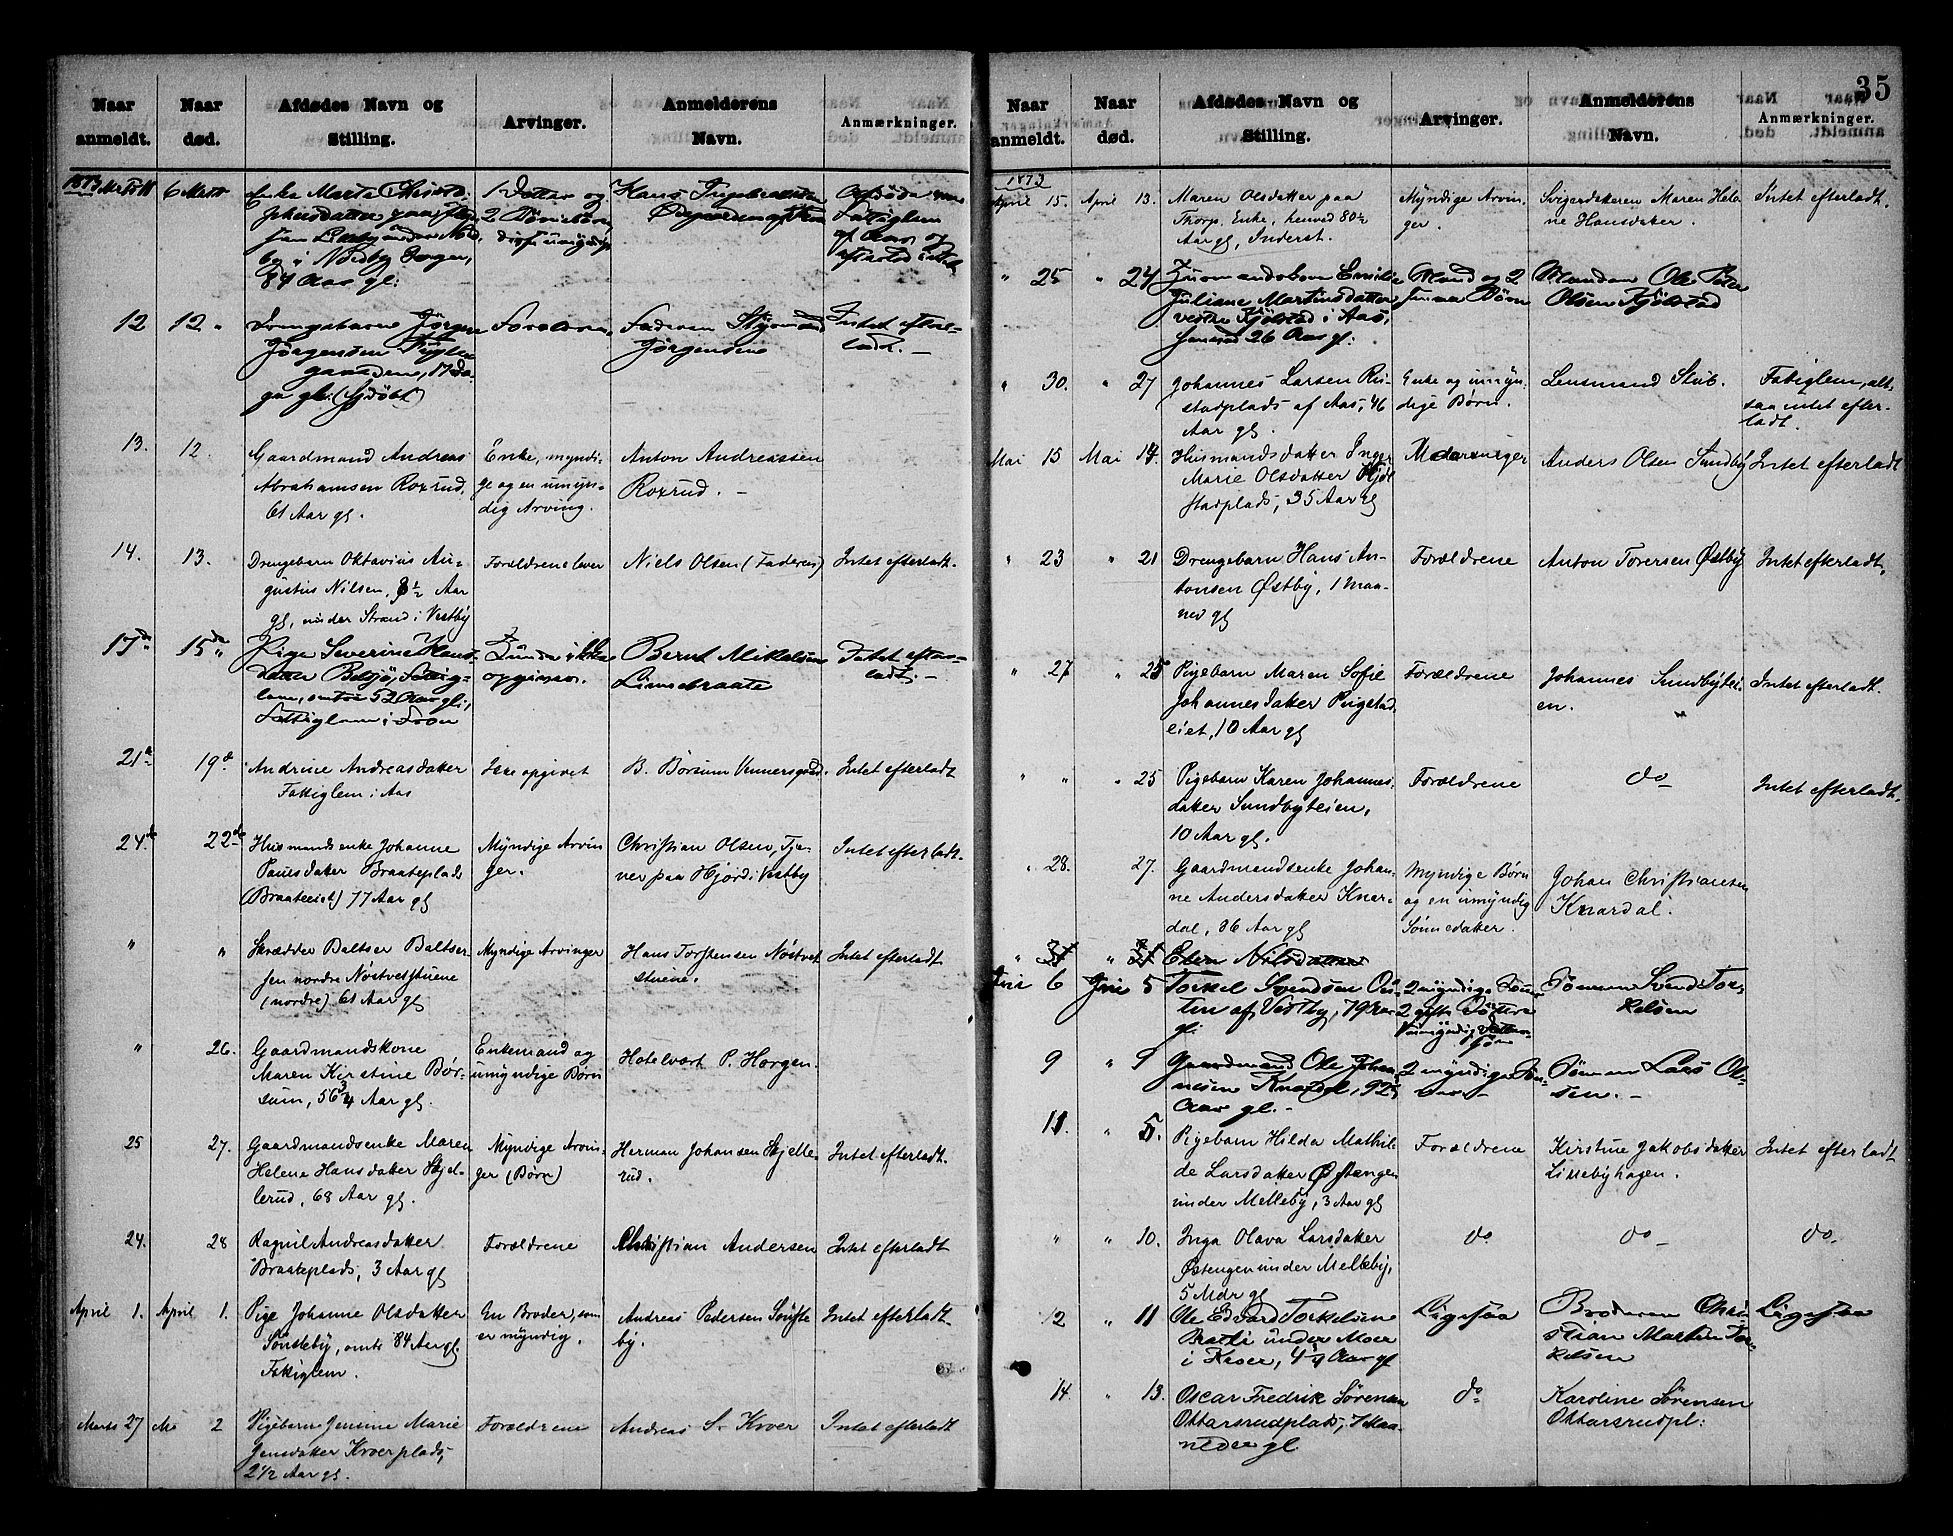 35
Naar
anmeldt.
Naar
død.
Afdødes Navn og
Stilling.
Arvinger.
Anmelderens
Navn.
Anmærkninger.
1873
6
Enke Marta
84 Aar gl:
1 Datter og
Hans
12
12 "
Drengebarn Jørgen
Jørgensen
Faderen
Jørgensen
Intet efter-
ladt. –
13.
12.
Gaardmand Andreas
Abrahamsen Roxrud,
61 Aar gl.
Enke, myndi-
ge og en umyn-
dig Arving.
Anton Andreassen
Roxrud. –
14.
13.
Drengebarn Oktavius Au-
gustus Nilsen, Aar
gl, under Strand i Vestby
Forældrene lever
Niels Olsen (Faderen)
Intet efterladt.
17de
15de
Pige Severine Hans-
datter
Fattiglem i
ikke
opgivne.
Bernt Mikelsen
Intet efter-
ladt. –
21
19
Andrine Andreasdatter
Fattiglem i Aas
Ikke opgivet
B. Børsum
Intet efterladt
24de
22de
Husmandsenke Johanne
Paulsdatter Braateplads
(Braateeiet) 77 Aar gl
Myndige Arvin
ger.
Christian Olsen, Tje-
ner paa Hjord i Vestby
Intet efterladt.
"
"
Skrædder Baltser Baltser-
sen nordre Nøstvetstuene
(nordre) 61 Aar gl
Myndige Arvinger
Hans Torstensen Nøstvet
stuene.
Intet efterladt
"
26.
Gaardmandskone
Maren Kirstine Bør-
sum, 56 3/4 Aar gl.
Enkemand og
umyndige Børn
Hotelvært P. Horgen.
25
27.
Gaardmandsenke Maren
Helene Hansdatter Skjel-
lerud, 68 Aar gl.
Myndige Arvin-
ger (Børn)
Herman Johansen Skjelle-
rud.
Intet efterladt.
24.
28
Ragnil Andreasdatter
Braateplads, 3 Aar gl
Forældrene
Christian Andersen
Intet efterladt
April 1.
April 1.
Pige Johanne Olsdatter
Sønsteby, omtr 84 Aar gl.
Fattiglem.
En Broder, som
er myndig.
Andreas Pedersen Sønste
by.
Intet efterladt.
Marts 27
M 2
Pigebarn Jensine Marie
Jensdatter Kroerplads,
2 1/2 Aar gl.
Forældrene
Andreas S. Kroer
Intet efterladt
Naar
anmeldt.
Naar
død.
Afdødes Navn og
Stilling.
Arvinger.
Anmelderens
Navn.
Anmærkninger.
1873
April 15.
April 13.
Maren Olsdatter paa
Thorp, Enke, henved 80
Aar gl, Inderst.
Myndige Arvin-
ger.
Svigerdatteren Maren Hele
ne Hansdatter.
Intet efterladt.
" 25
" 24
Emilie
Juliane Martinsdatter
vestre Kjølstad i Aas,
26 Aar gl.
Mand og 2
Børn
Manden Ole
Olsen Kjølstad
" 30.
" 27
Johannes Larsen Ru-
stadplads af Aas, 46
Aar gl.
Enke og umyn-
dige Børn.
Lensmand Stub.
Fatiglem, alt-
saa intet efter-
ladt.
Mai 15
Mai 14
Husmandsdatter Inger
Marie Olsdatter Kjøl
stadplads, 35 Aar gl
Anders Olsen Sundby
Intet efterladt
" 23
" 21
Drengebarn Hans An-
tonsen Østby, 1 Maa-
ned gl
Forældrene
Anton Toresen Østby
Intet efterladt.
" 27
" 25
Pigebarn Maren Sofie
Johannesdatter Rustad
eiet, 10 Aar gl
Forældrene
Johannes Sundbyei-
en.
Intet efterladt.
" "
" 25
Pigebarn Karen Johannes-
datter Sundbyeien,
10 Aar gl.
Forældrene
do
Intet efterladt.
" 28.
27.
Gaardmandsenke Johan-
ne Andersdatter Knar-
dal, 86 Aar gl
Myndige Børn
og en umyndig
Sønnedatter.
Johan Christiansen
Knardal.
" 31
" 31
Elen Nilsdatter
Juni 6
Juni 5
Torkel Svendsen
af Vestby, 79 Aar
gl.
2 myndige Sønner
2 gifte Døttre
Sønnen Svend Tor-
kelsen
9
" 9
Gaardmand Ole Johan-
nesen Knardal, 92
Aar gl. –
2 myndige Søn-
ner –
Sønnen Lars Ol-
sen. –
11.
" 5.
Pigebarn Hilda Mathil-
de Larsdatter Østengen
under Melleby, 3 Aar gl
Forældrene
Kirstine Jakobsdatter
Lillebyhagen.
Intet efterladt
"
" 10.
Inga Olava Larsdatter
Østengen under Melleby,
5 Mdr gl
do
do
do
12
" 11
Ole Edvard Torkelsen
Braati under Moer
i Kroer, Aar gl
Ligesaa
Broderen Chri-
stian Martin Tor-
kelsen
Ligesaa
14
" 13.
Oscar Fredrik Sørensen
Ottarsrudplads, 7 Maa-
neder gl
do
Karoline Sørensen
Ottarsrudpl: